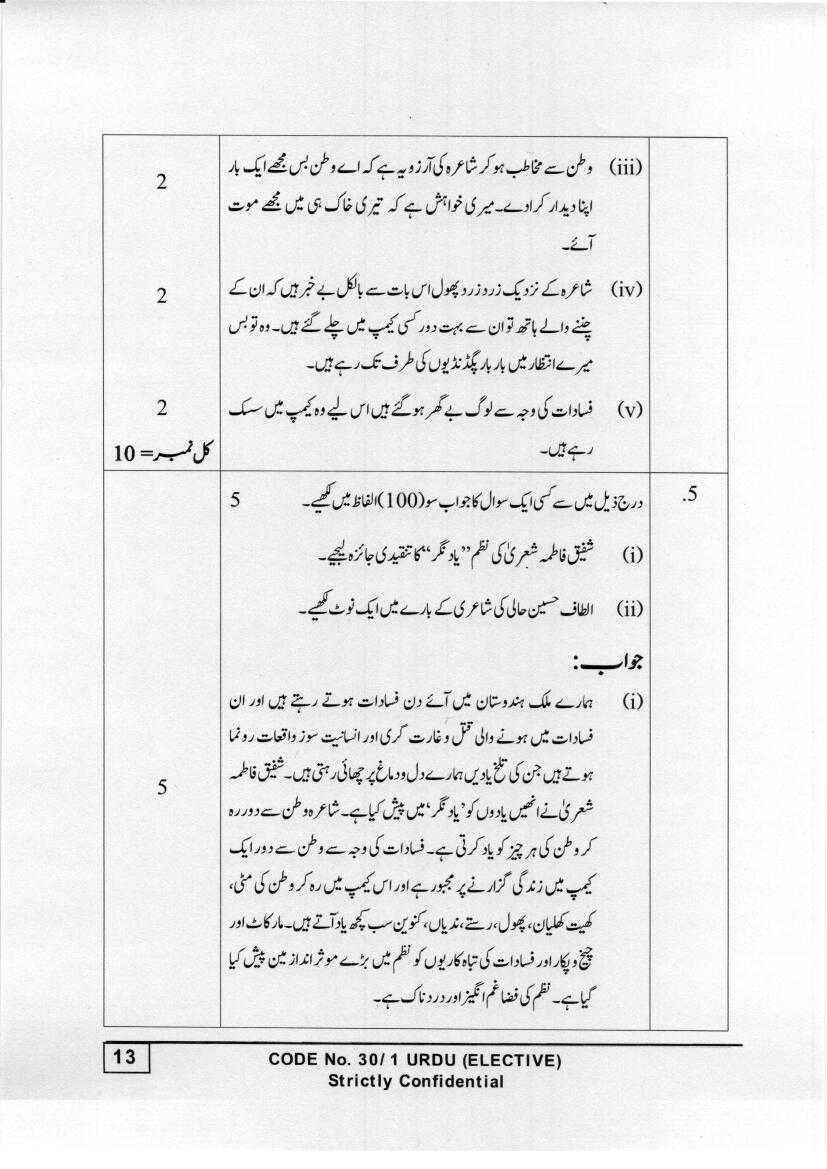 (iii) وطن سے مخاطب ہو کر شاعرہ کی آرزو یہ ہے کہ اے وطن بس مجھے ایک بار 2
اپنا دیدار کرا دے۔ میری خواہش ہے کہ تیری خاک ہی میں مجھے موت
آئے۔
(iv) شاعرہ کے نزدیک زرد زرد پھول اس بات سے بالکل بے خبر ہیں کہ ان کے 2
چننے والے ہاتھ تو ان سے بہت دور کسی کیمپ میں چلے گئے ہیں۔ وہ تو بس
میرے انتظار میں بار بار پگڈنڈیوں کی طرف تک رہے ہیں۔
(v) فسادات کی وجہ سے لوگ بے گھر ہو گئے ہیں اس لیے وہ کیمپ میں سسک 2
رہے ہیں۔ کل نمبر = 10
5. درج ذیل میں سے کسی ایک سوال کا جواب سو (100) الفاظ میں لکھیے۔ 5
(i) شفیق فاطمہ شعریٰ کی نظم ”یاد نگر“ کا تنقیدی جائزہ لیجیے۔
(ii) الطاف حسین حالی کی شاعری کے بارے میں ایک نوٹ لکھیے۔
جواب:
(i) ہمارے ملک ہندوستان میں آئے دن فسادات ہوتے رہتے ہیں اور ان
فسادات میں ہونے والی قتل و غارت گری اور انسانیت سوز واقعات رونما
ہوتے ہیں جن کی تلخ یادیں ہمارے دل و دماغ پر چھائی رہتی ہیں۔ شفیق فاطمہ 5
شعریٰ نے انھیں یادوں کو ’یاد نگر‘ میں پیش کیا ہے۔ شاعرہ وطن سے دور رہ
کر وطن کی ہر چیز کو یاد کرتی ہے۔ فسادات کی وجہ سے وطن سے دور ایک
کیمپ میں زندگی گزارنے پر مجبور ہے اور اس کیمپ میں رہ کر وطن کی مٹی،
کھیت کھلیان، پھول، رستے، ندیاں، کنویں سب کچھ یاد آتے ہیں۔ مار کاٹ اور
چیخ و پکار اور فسادات کی تباہ کاریوں کو نظم میں بڑے موثر انداز مین پیش کیا
گیا ہے۔ نظم کی فضا غم انگیز اور درد ناک ہے۔
13 CODE No. 30/1 URDU (ELECTIVE)
Strictly Confidential